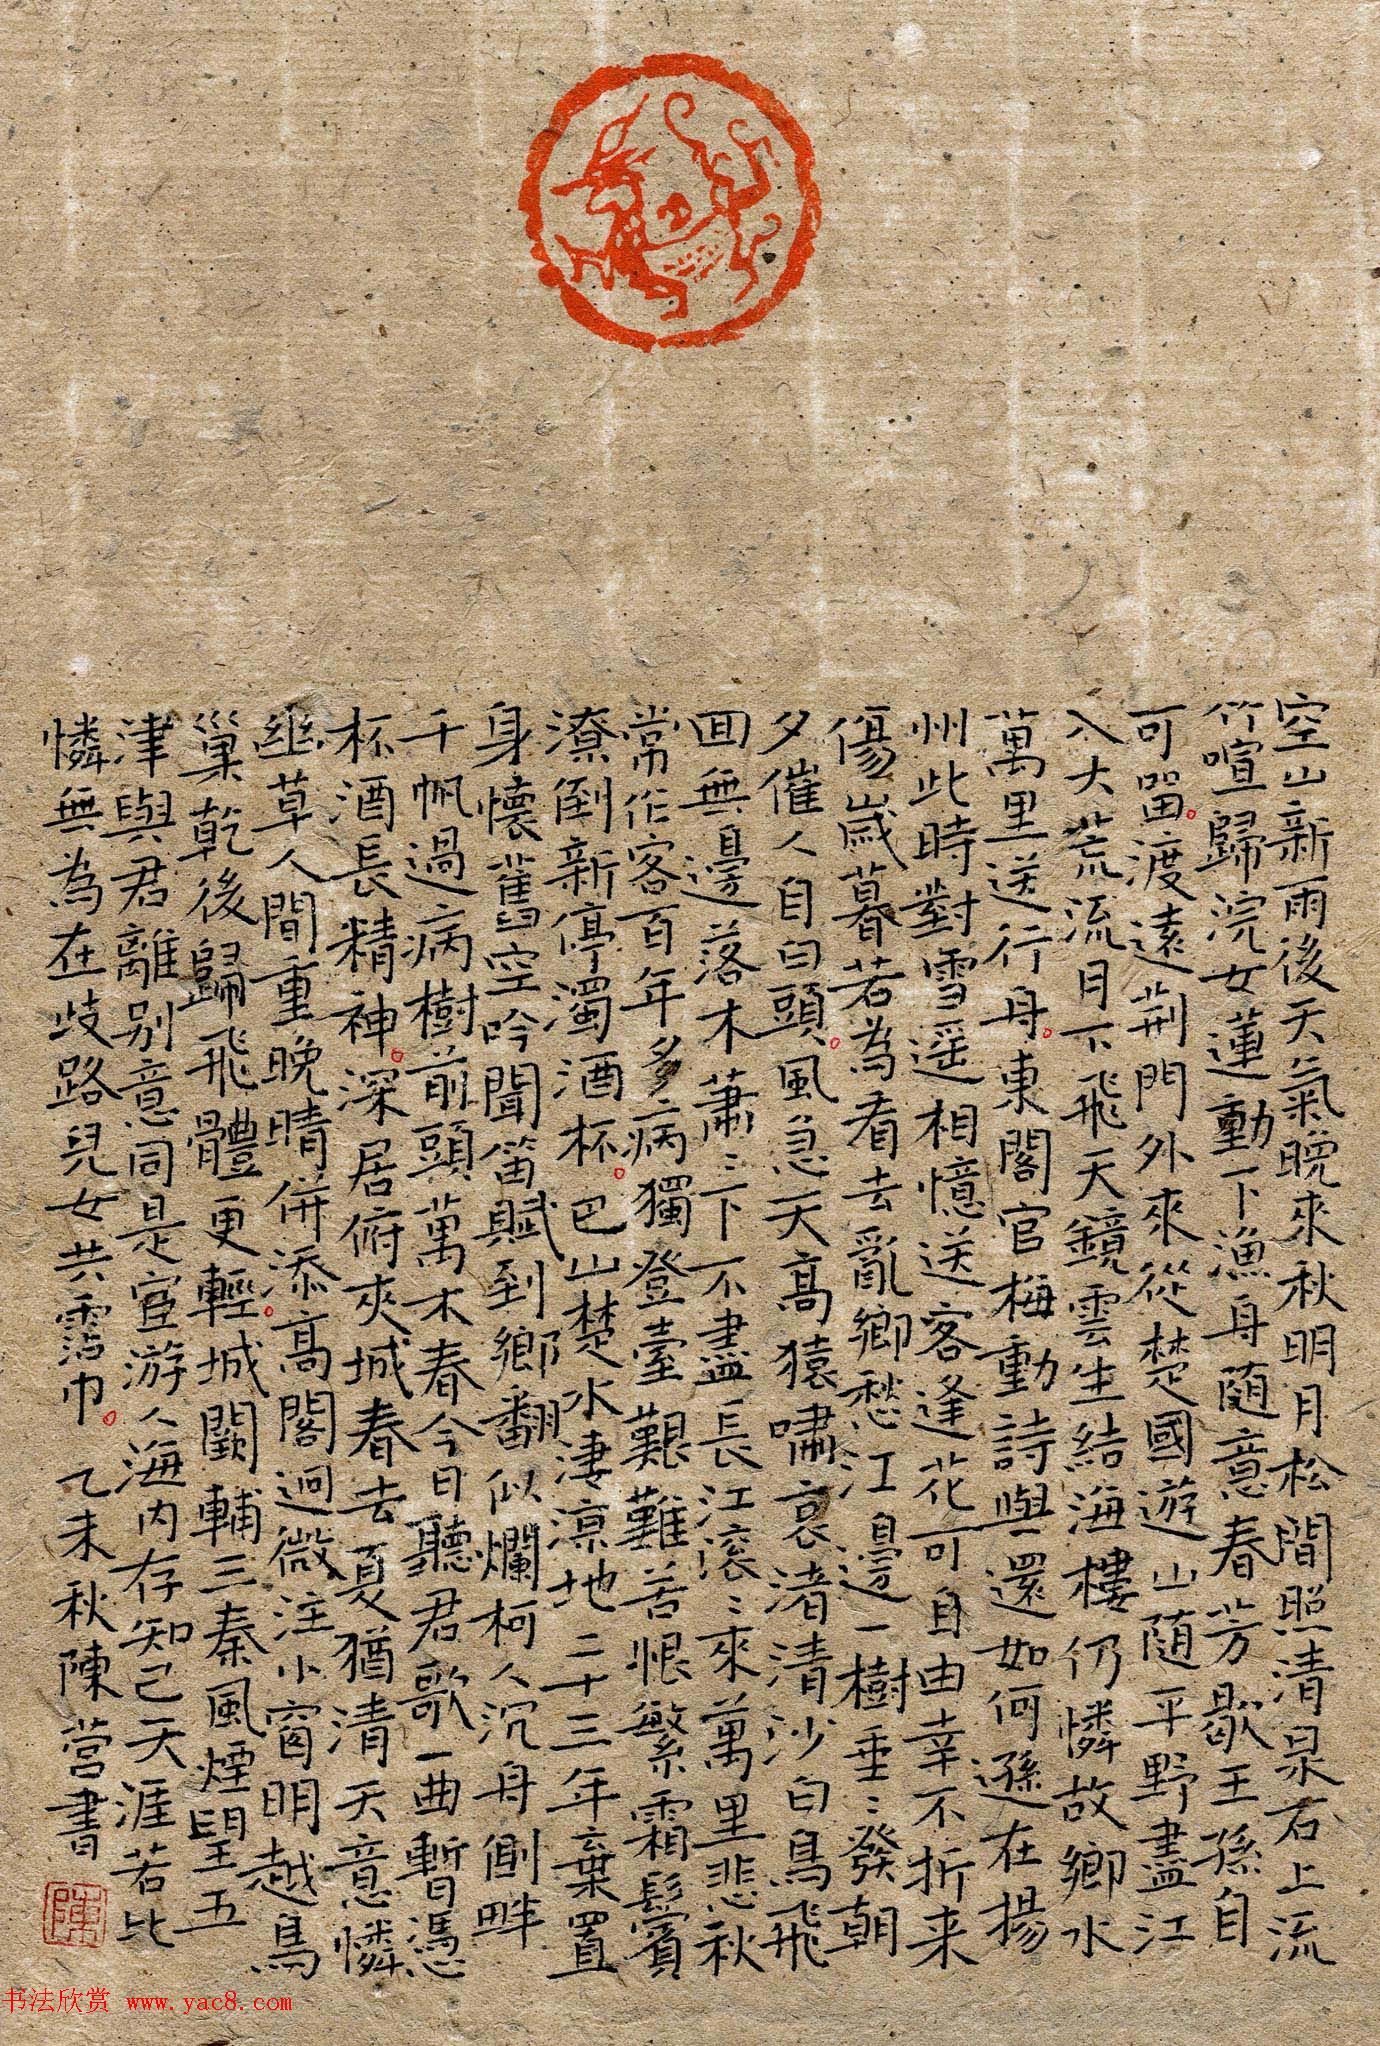 空山新雨後天氣晚來秋明月松間照清泉石上流
竹喧歸浣女蓮動下漁舟随意春芳歇王孫自
可留。渡遠荊門外來從楚國遊山随平野盡江
入大荒流月下飛天鏡雲生結海樓仍憐故鄉水
萬里送行舟。東閣官梅動詩與還如何遜在揚
州此時對雪遥相憶送客逢花可自由幸不折来
傷歲暮若為看去亂鄉愁江邊一樹垂〻發朝
夕催人自白頭。風急天高猿嘯哀渚清沙白鳥飛
回無邊落木蕭〻下不盡長江滾〻來萬里悲秋
常作客百年多病獨登臺艱難苦恨繁霜鬢
潦倒新停濁酒杯。巴山楚水凄凉地二十三年棄置
身懷舊空吟聞笛賦到鄉翻似爛柯人沉舟側畔
千帆過病樹前頭萬木春今日聽君歌一曲暫憑
杯酒長精神。深居俯夾城春去夏猶清天意憐
幽草人間重晚晴併添。高閣迥微注小窗明越鳥
巢乾後歸飛體更輕。城闕輔三秦風煙望五
津與君離别意同是宦游人海内存知己天涯若比
憐無為在歧路兒女共霑巾。乙未秋陳營書
陳
书法欣赏 www.yac8.com